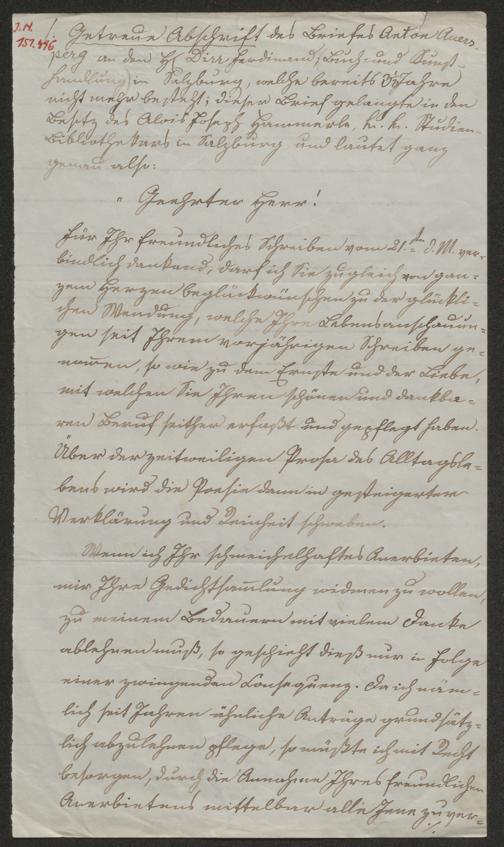 J.N.
151.496
/: Getreue Abschrift des Briefes Anton Auers-
perg an den H. Dirr Ferdinand, Buch und Kunst-
handlung in Salzburg, welche bereits Jahre
nicht mehr besteht; dieser Brief gelangte in den
Besitz des Alois Joseph Hammerle, k. k. Studien-
bibliothekars in Salzburg und lautet ganz
genau also:
„ Geehrter Herr!
Für Ihr freundliches Schreiben vom 21. d. M. ver-
bindlich dankend, darf ich Sie zugleich von gan-
zem Herzen beglückwünschen zu der glückli-
chen Wendung, welche Ihre Lebensanschauun-
gen seit Ihrem vorjährigen Schreiben ge-
nommen, so wie zu dem Ernste und der Liebe,
mit welchen Sie Ihren schönen und dankba-
ren Beruf seither erfaßt und gepflegt haben.
Über der zeitweiligen Prosa des Alltagsle-
bens wird die Poesie dann in gesteigerter
Verklärung und Reinheit schweben.
Wenn ich Ihr schmeichelhaftes Anerbieten,
mir Ihre Gedichtsammlung widmen zu wollen,
zu meinem Bedauern mit vielem Danke
ablehnen muß, so geschieht dieß nur in Folge
einer zwingenden Consequenz. Da ich näm-
lich seit Jahren ähnliche Anträge grundsätz-
lich abzulehnen pflege, so müßte ich mit Recht
besorgen, durch die Annahme Ihres freundlichen
Anerbietens mittelbar alle Jene zu ver-
./.